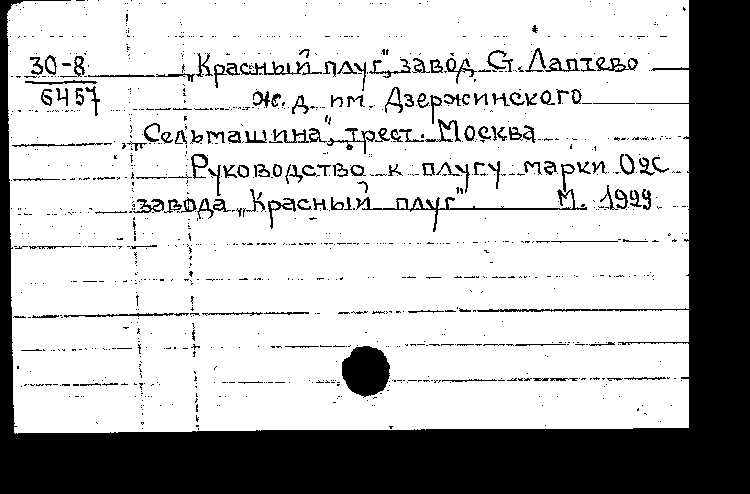 30-8
6457
„Красный плуг", завод, Ст. Лаптево
ж. д. им. Дзержинского
„Сельмашина", трест. Москва
Руководство к плугу марки О2С
завода „Красный плуг". М. 1929